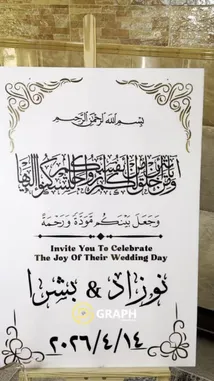 بسم الله الرحمن الرحيم
ومن آياته أن خلق لكم من أنفسكم أزواجا لتسكنوا إليها
وَجَعَلَ بَيْنَكُم مَّوَدَّةً وَرَحْمَةً
Invite You To Celebrate
The Joy Of Their Wedding Day
نوزاد & بشرا
GRAPH
٢٠٢٦/٤/١٤